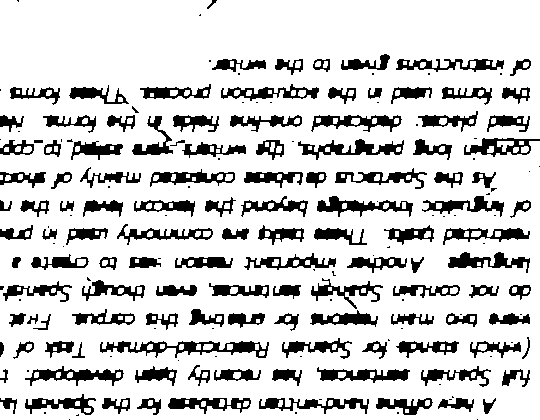 A new offline hand-written database for the Spanish la
full Spanish sentences, has recently been developed: t
(which stands for Spanish Restricted-domain Task of
were two main reasons for creating this corpus. First
do not contain Spanish sentences, even though Spanish
language. Another important reason was to create a
restricted tasks. These tasks are commonly used in
of linguistic knowledge beyond the lexicon level in the
As the Spartacus database consisted mainly of short
contain long paragraphs, the writers were asked to copy
fixed places: dedicated one-line fields in the forms.
the forms used in the acquisition process. These forms
of instructions given to the writer.